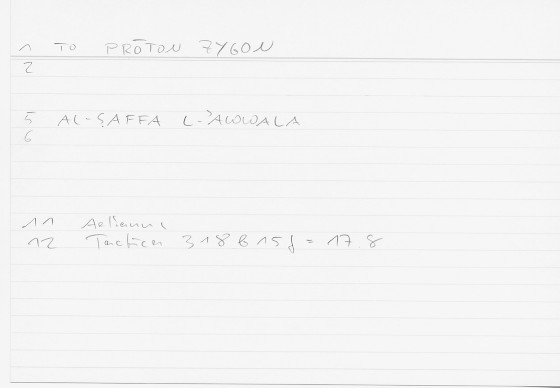 1 TO PRŌTON ZYGON
2
5 AL-ṢAFFA L-ʾAWWALA
6
11 Aelianus
12 Tactica 318 B 15f = 17.8